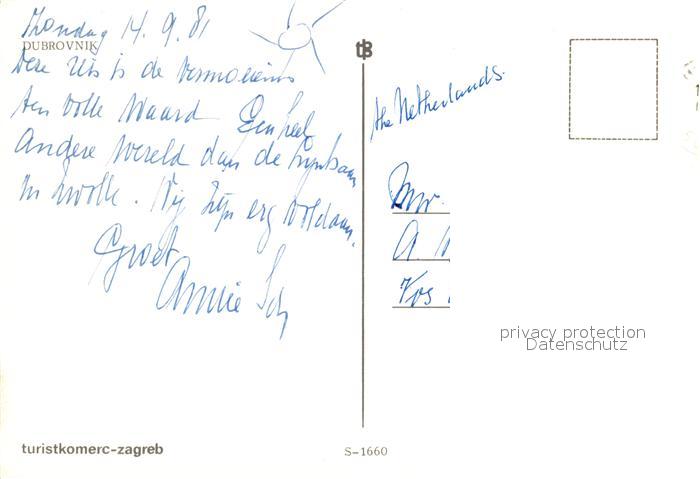 Zondag 14.9.81
DUBROVNIK
Deze reis is de vermoeienis
ten volle waard Een heel
Andere wereld dan de
In Zwolle. Wij zijn erg voldaan.
Groet
Annie
tB
the Netherlands.
Mw.
A.
Vos
privacy protection
Datenschutz
turistkomerc-zagreb
S-1660